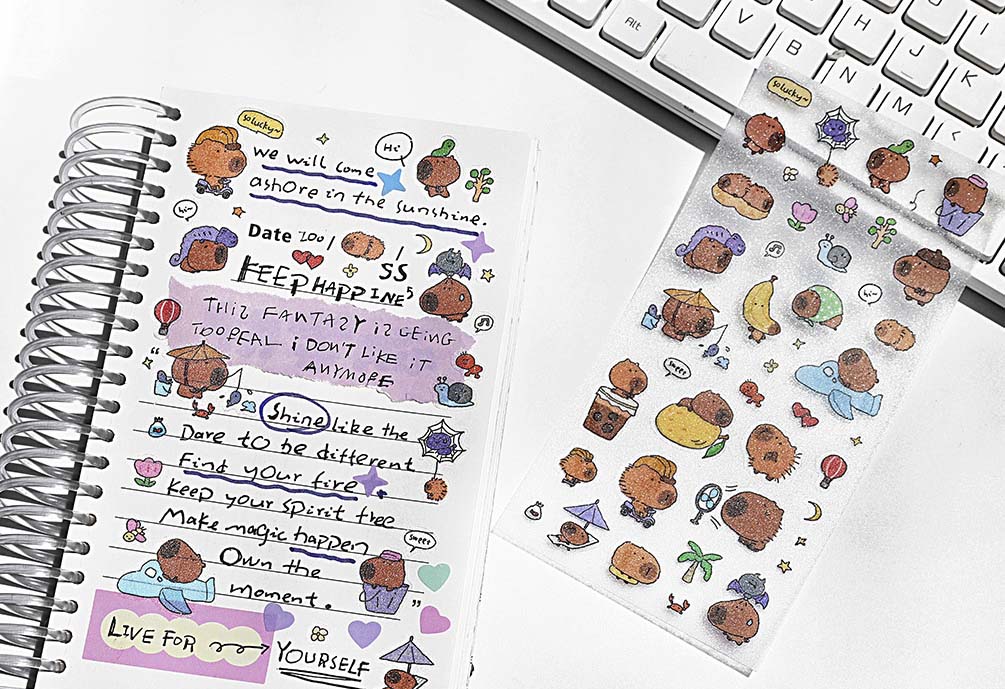 so lucky~
we will come
Hi
ashore in the sunshine.
hi~
Date 200/ / SS
KEEP HAPPINES
THIS FANTAZY IS BEING
TOO REAL i DON'T LIKE iT
ANYMORE
"
Shine like the
Dare to be different
Find your fire.
Keep your spirit free
Make magic happen
sweet
Own the
moment. "
LIVE FOR
YOURSELF
Alt
V
B
N
M
<
H
J
K
so lucky~
hi~
sweet